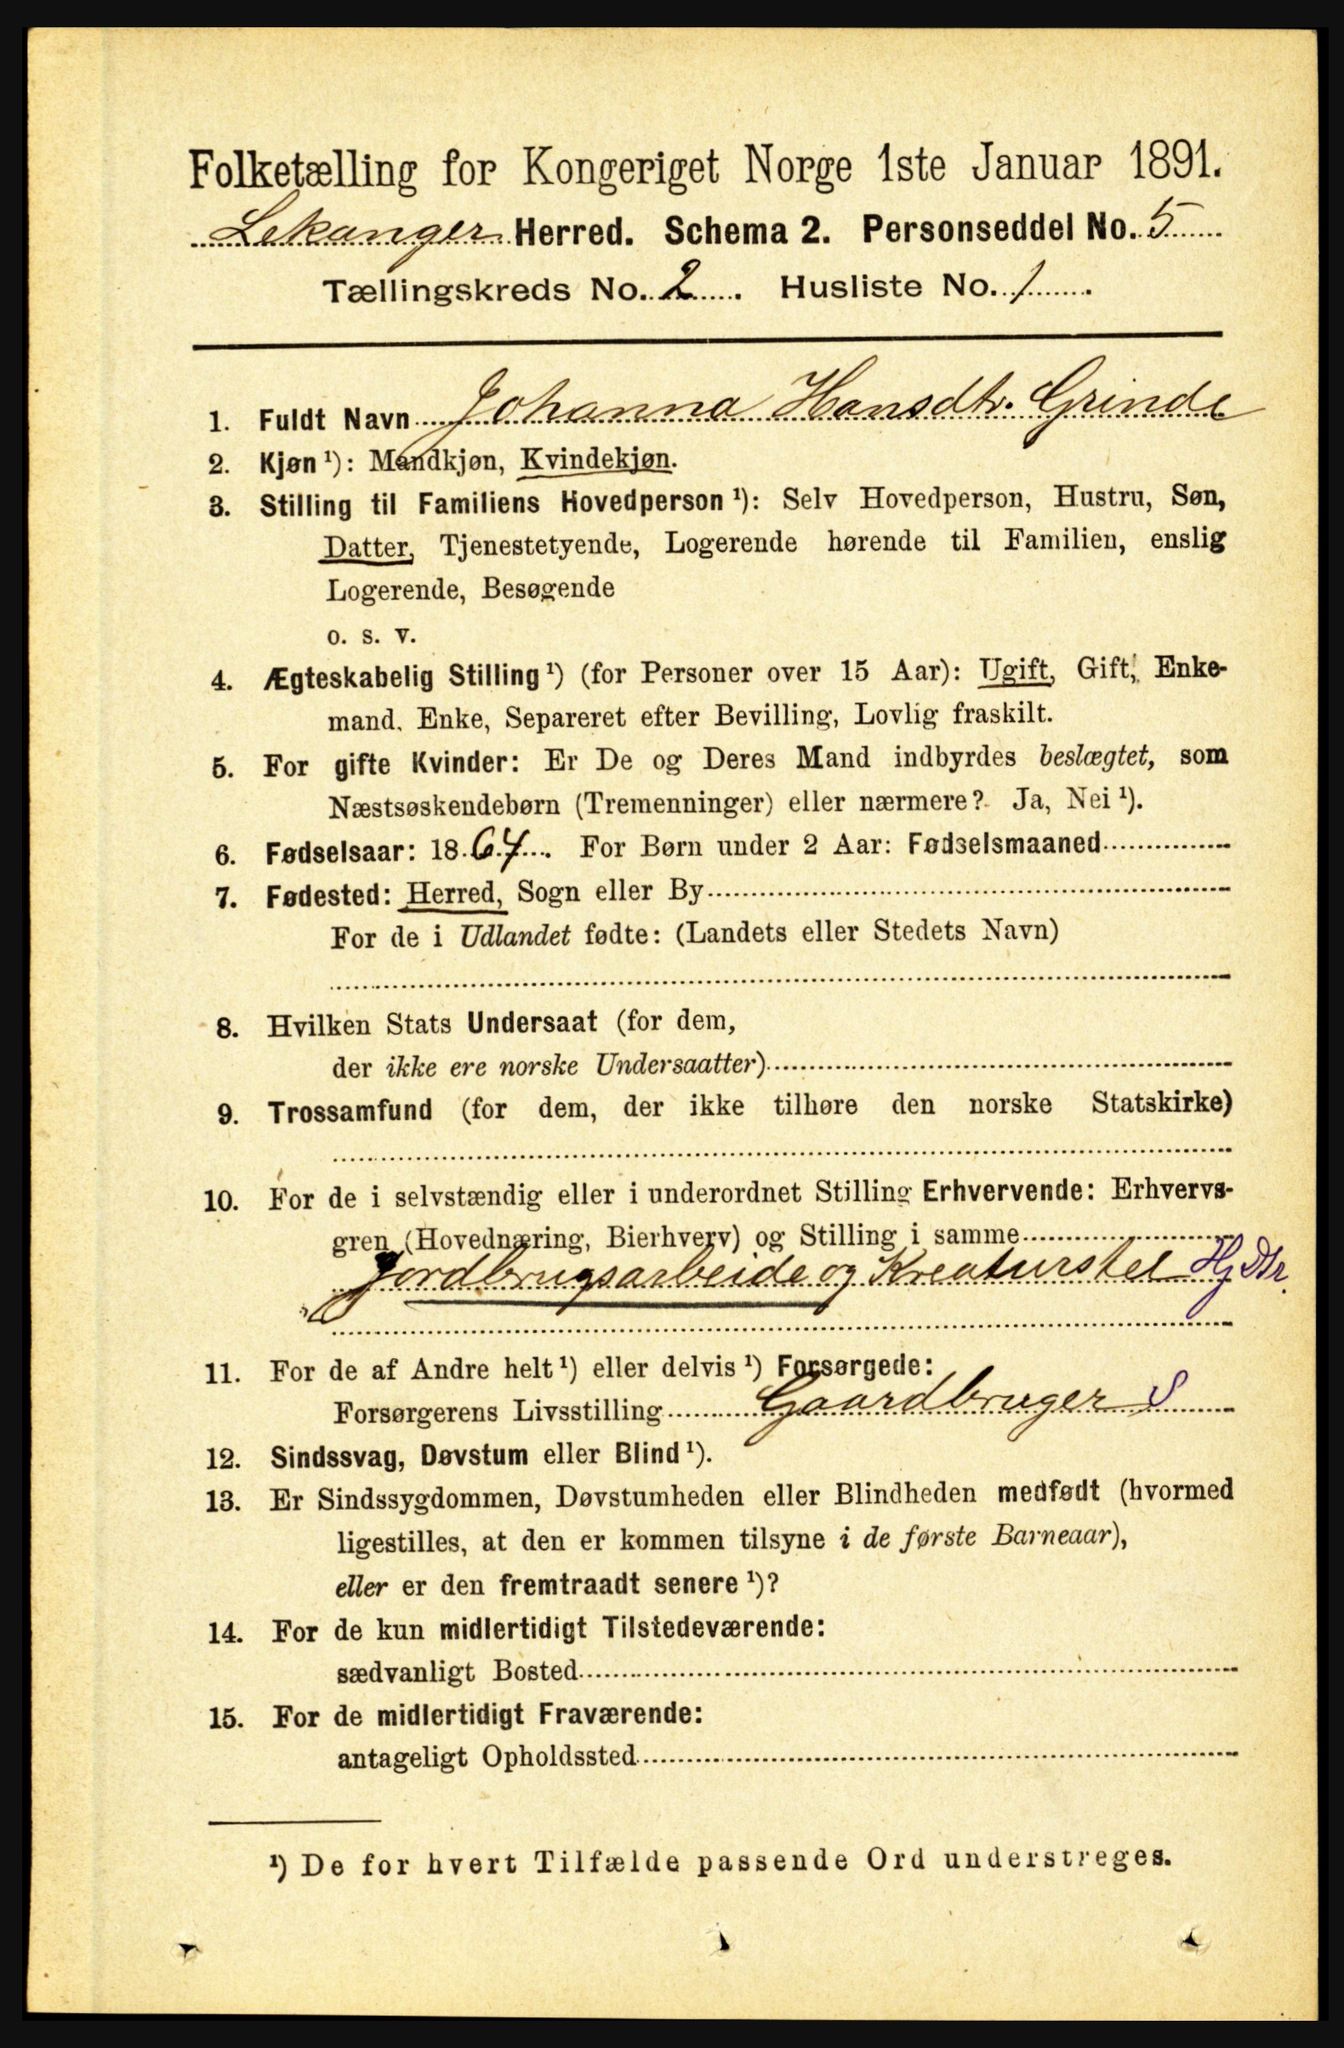 Folketælling for Kongeriget Norge 1ste Januar 1891.
Lekanger Herred. Schema 2. Personseddel No. 5
Tællingskreds No. 2. Husliste No. 1.
1. Fuldt Navn Johanna Hansdtr. Grinde
2. Kjøn ¹): Mandkjøn, Kvindekjøn.
3. Stilling til Familiens Hovedperson ¹): Selv Hovedperson, Hustru, Søn,
Datter, Tjenestetyende, Logerende hørende til Familien, enslig
Logerende, Besøgende
o. s. v.
4. Ægteskabelig Stilling ¹) (for Personer over 15 Aar): Ugift, Gift, Enke-
mand, Enke, Separeret efter Bevilling, Lovlig fraskilt.
5. For gifte Kvinder: Er De og Deres Mand indbyrdes beslægtet, som
Næstsøskendebørn (Tremenninger) eller nærmere? Ja, Nei ¹).
6. Fødselsaar: 1867. For Børn under 2 Aar: Fødselsmaaned
7. Fødested: Herred, Sogn eller By
For de i Udlandet fødte: (Landets eller Stedets Navn)
8. Hvilken Stats Undersaat (for dem,
der ikke ere norske Undersaatter)
9. Trossamfund (for dem, der ikke tilhøre den norske Statskirke)
10. For de i selvstændig eller i underordnet Stilling Erhvervende: Erhvervs-
gren (Hovednæring, Bierhverv) og Stilling i samme
Jordbrugsarbeide og Kreaturstel Hj Dtr.
11. For de af Andre helt ¹) eller delvis ¹) Forsørgede:
Forsørgerens Livsstilling Gaardbruger S
12. Sindssvag, Døvstum eller Blind ¹).
13. Er Sindssygdommen, Døvstumheden eller Blindheden medfødt (hvormed
ligestilles, at den er kommen tilsyne i de første Barneaar),
eller er den fremtraadt senere ¹)?
14. For de kun midlertidigt Tilstedeværende:
sædvanligt Bosted
15. For de midlertidigt Fraværende:
antageligt Opholdssted
¹) De for hvert Tilfælde passende Ord understreges.